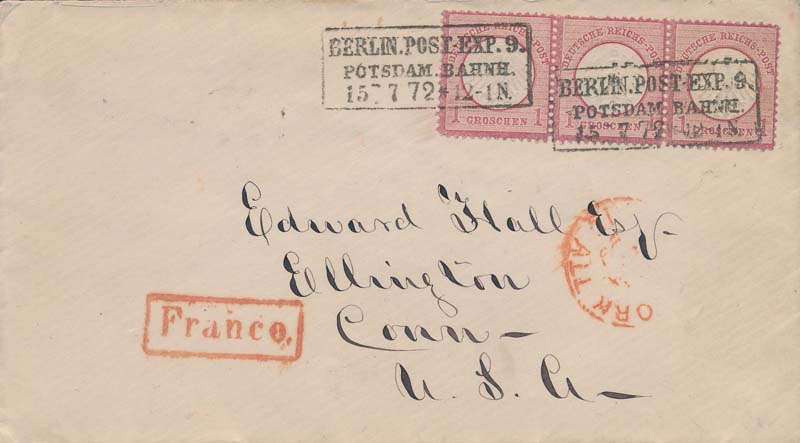 BERLIN.POST-EXP. 9.
POTSDAM. BAHNH.
15 7 72 * 12-1 N.
DEUTSCHE REICHS-POST
1 GROSCHEN
DEUTSCHE REICHS-POST
1 GROSCHEN
DEUTSCHE REICHS-POST
1 GROSCHEN
BERLIN.POST-EXP. 9.
POTSDAM. BAHNH.
15 7 72 * 12-1 N.
Edward Hall Esq.
Ellington
Conn-
U. S. A-
Franco.
ORK
ALL